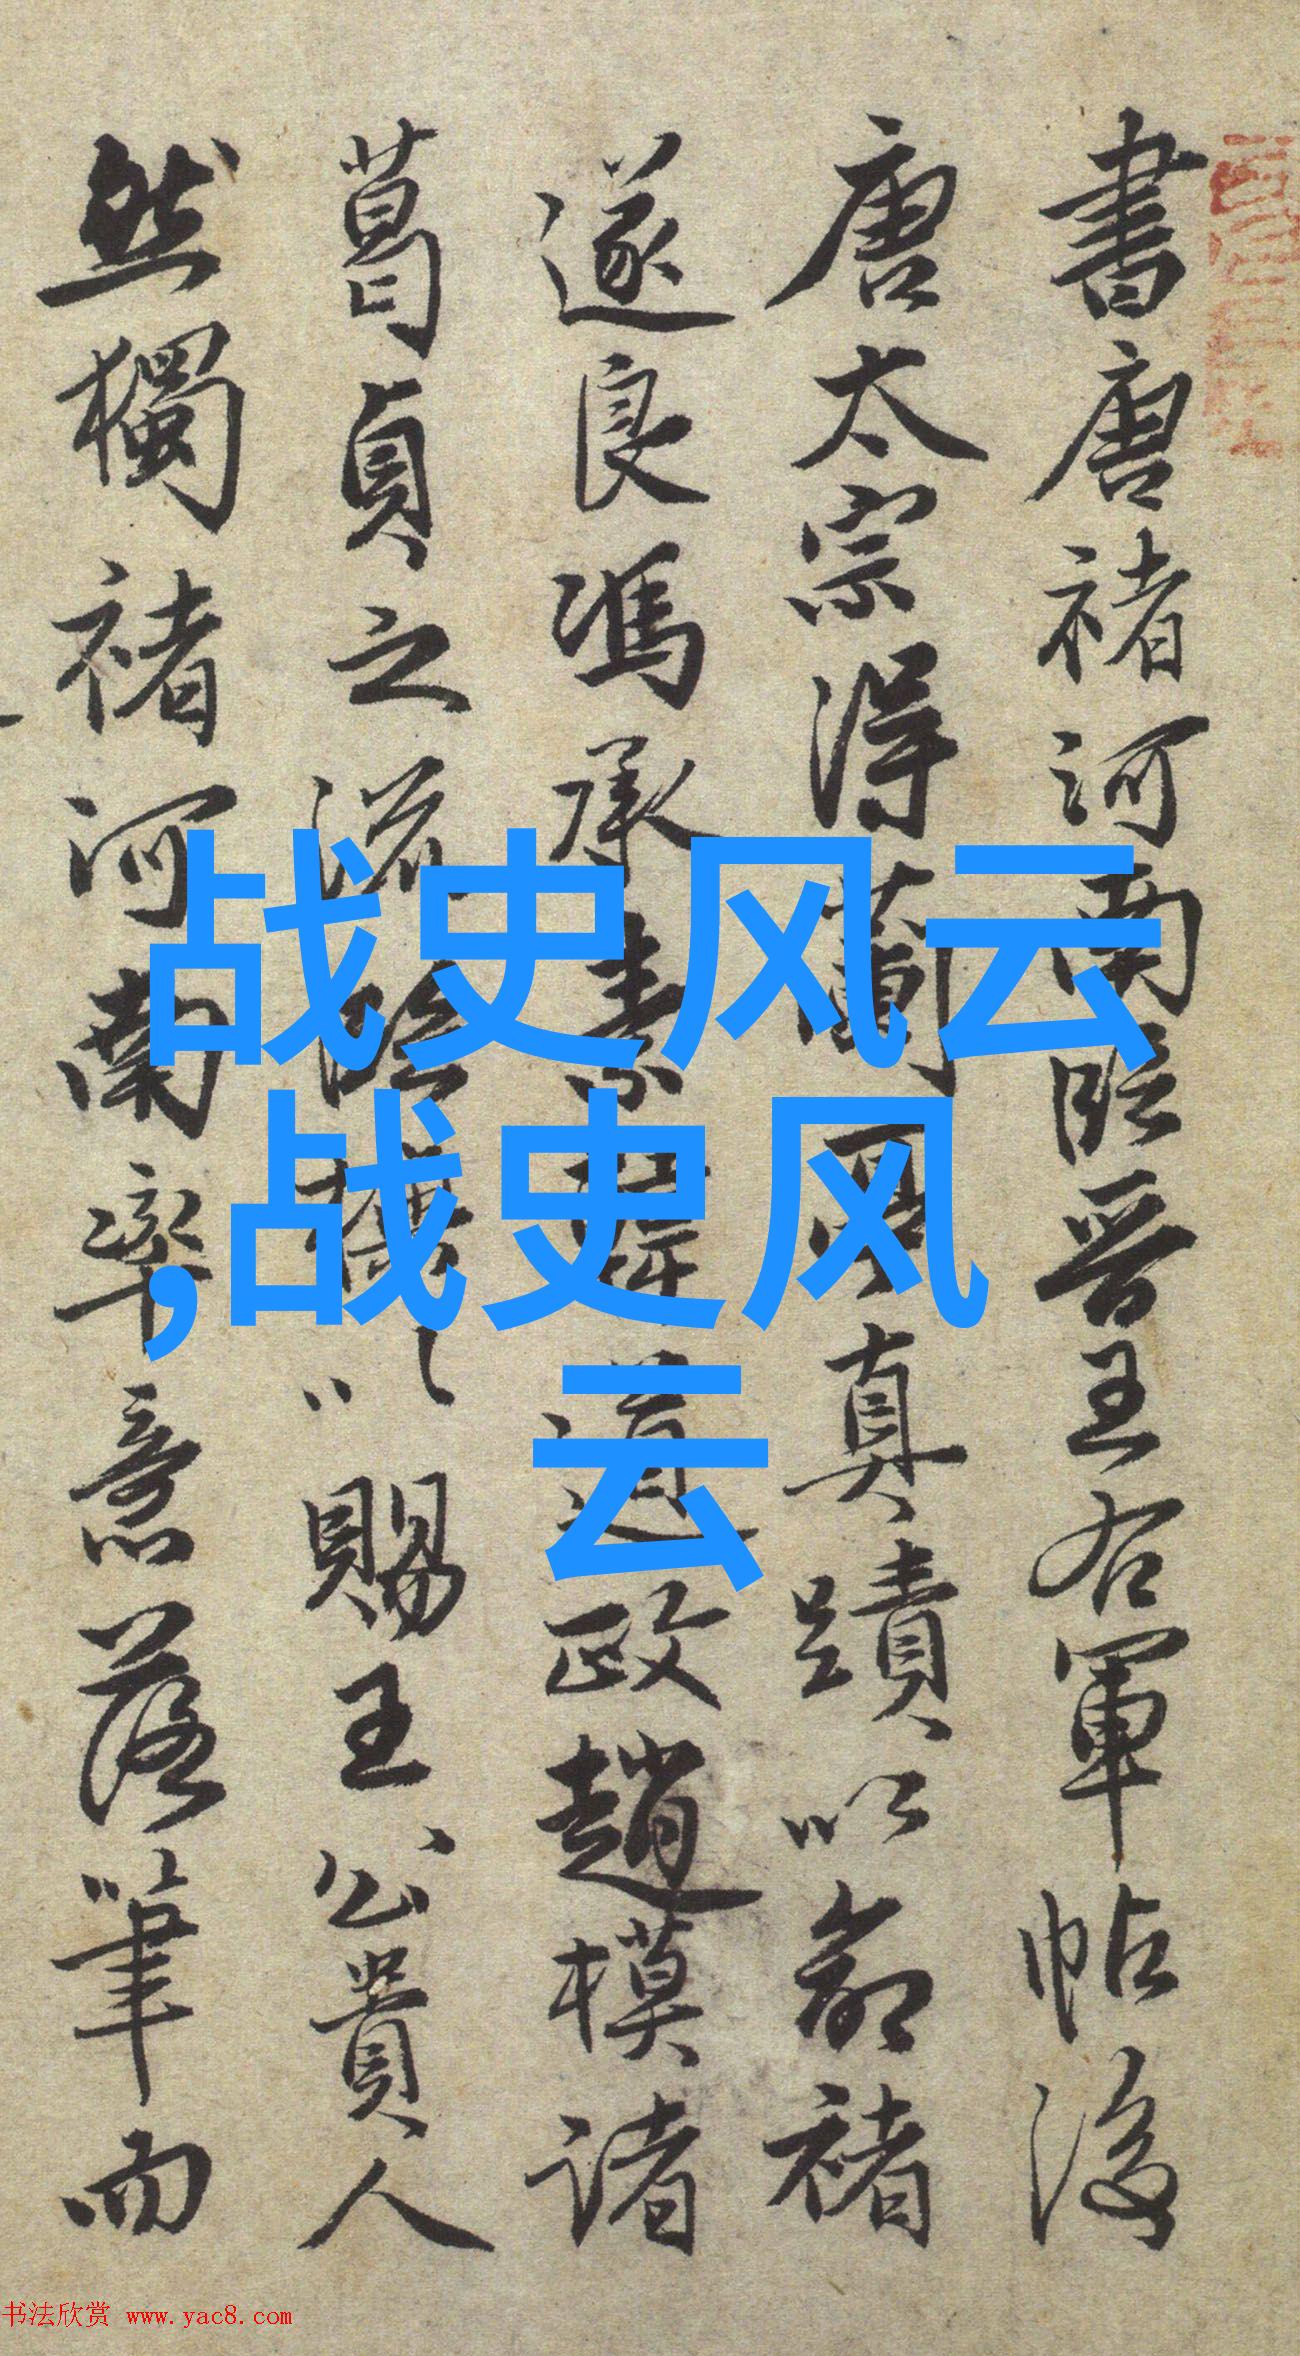 書唐褚河南臨晉王右軍帖後
唐太宗得蘭真蹟以命褚
遂良馮承素韓道政趙模諸
葛貞之流 以賜王公貴人
然獨褚河南率意落筆而
战史风云
,战史风
云
书法欣赏 www.yac8.com